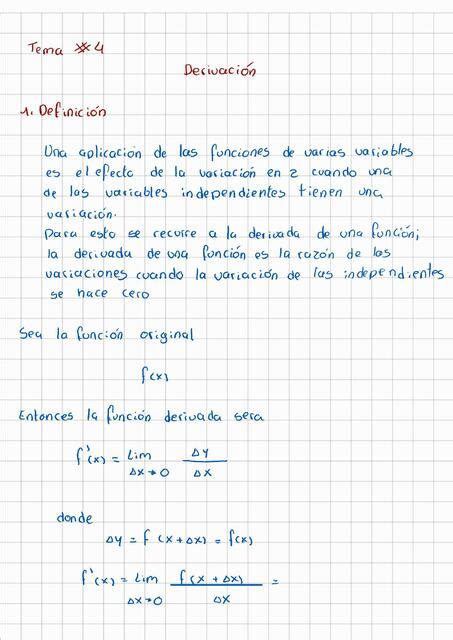 Tema #4
Derivación
1. Definición
Una aplicación de las funciones de varias variables
es el efecto de la variación en z cuando una
de las variables independientes tienen una
variación.
Para esto se recurre a la derivada de una función;
la derivada de una función es la razón de las
variaciones cuando la variación de las independientes
se hace cero
Sea la función original
f(x)
Entonces la función derivada sera
f'(x) = Lim Δx→0 Δy/Δx
donde
Δy = f (x + Δx) = f(x)
f'(x) = Lim Δx→0 f(x + Δx)/Δx =